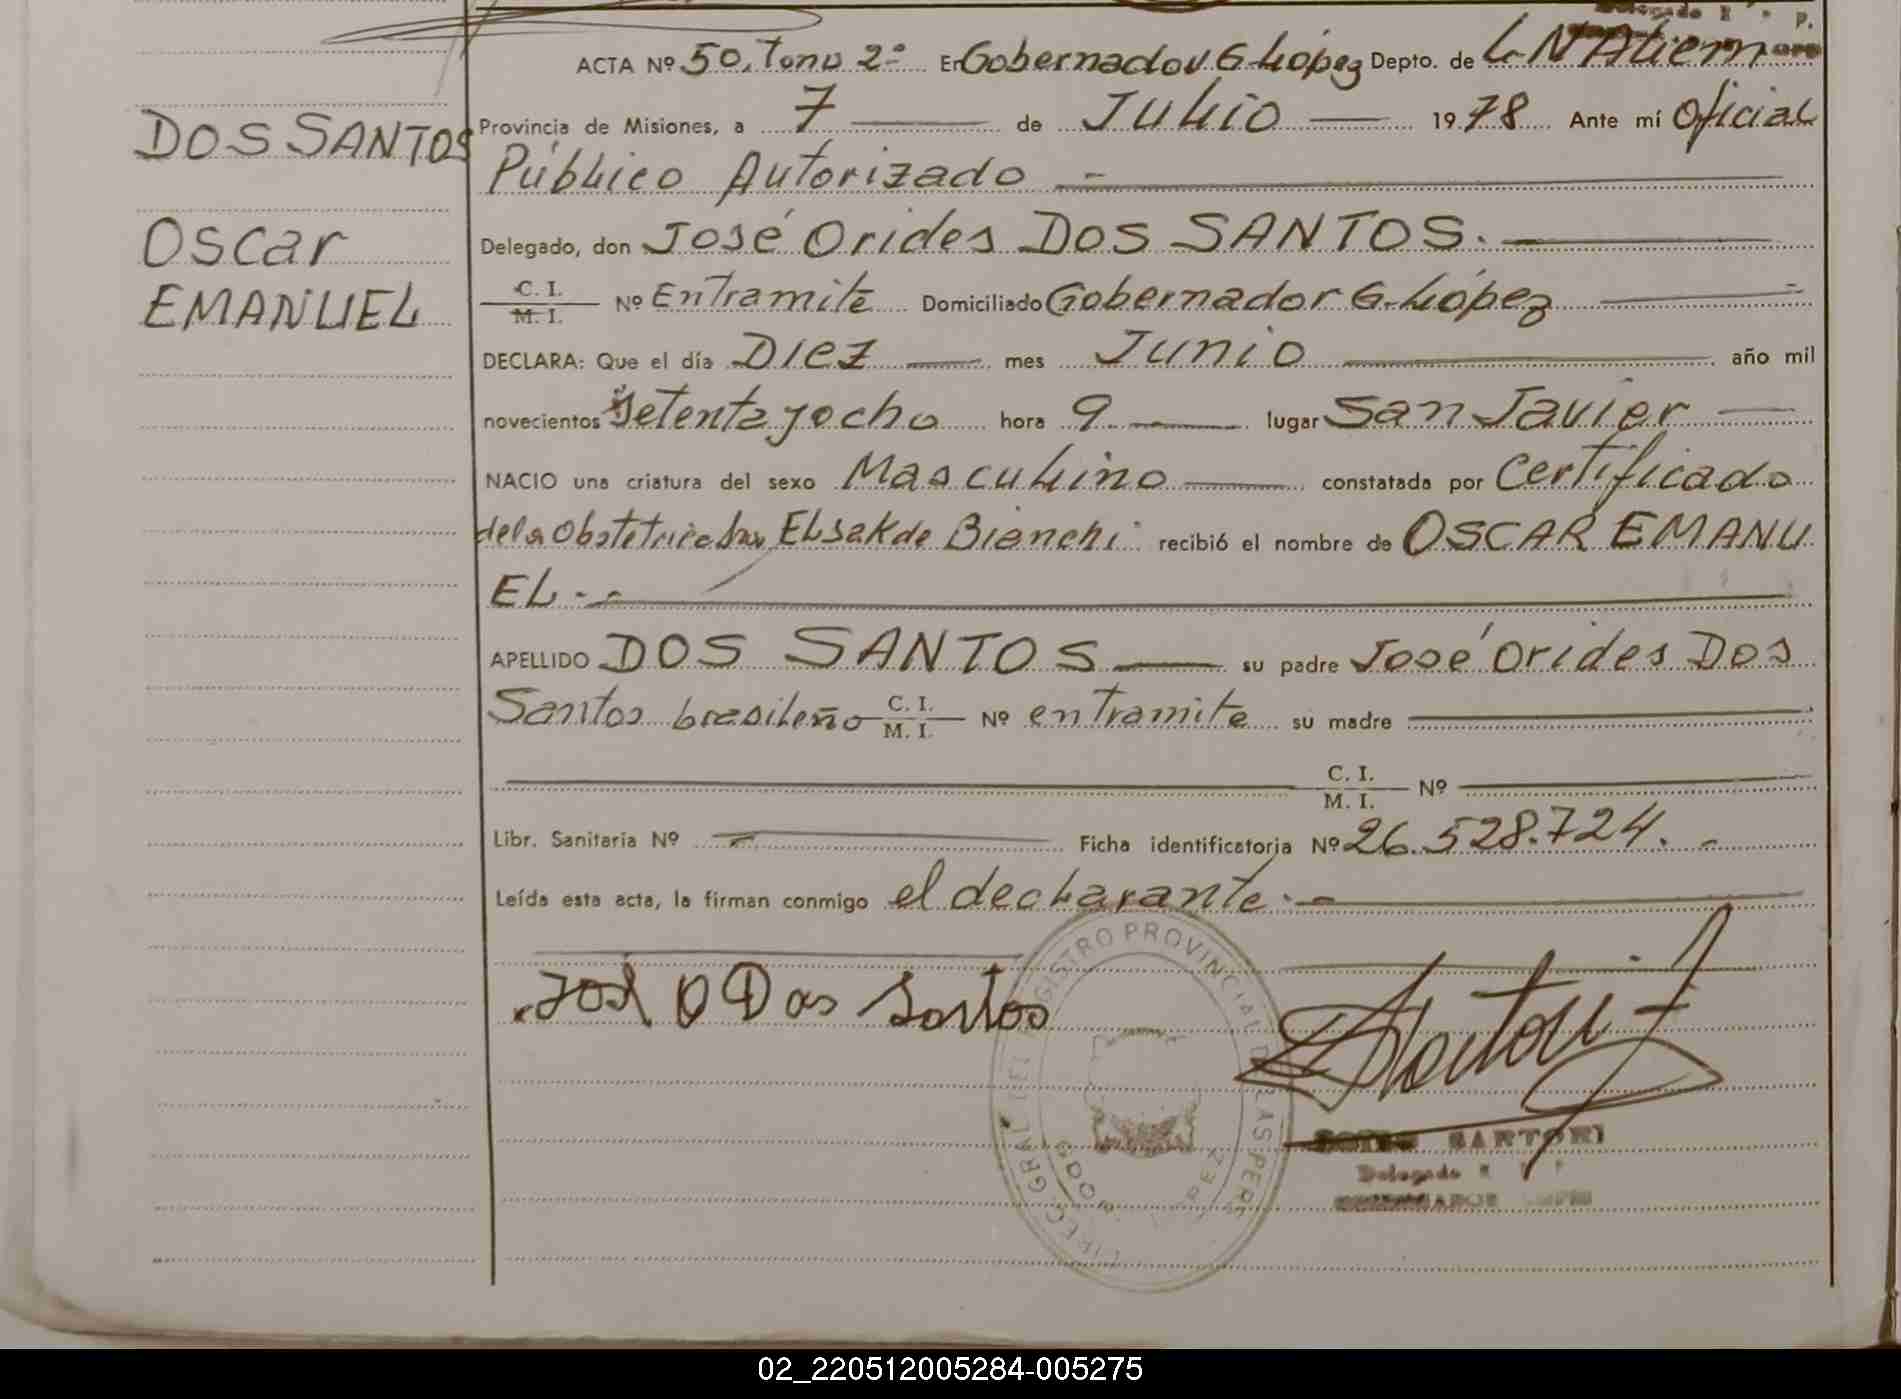 Delegado R. P.
ACTA Nº 50, Tomo 2º En Gobernador G. López Depto. de L-N Alem
DOS SANTOS
Provincia de Misiones, a 7 de Julio 1978 Ante mí Oficial
Público Autorizado -
Oscar
Delegado, don José Orides DOS SANTOS. -
EMANUEL
C. I. / M. I. Nº Entramite Domiciliado Gobernador G. López
DECLARA: Que el día Diez mes Junio año mil
novecientos setenta y ocho hora 9 lugar San Javier
NACIO una criatura del sexo Masculino constatada por Certificado
de la Obstetrica Elsa K de Bianchi recibió el nombre de OSCAR EMANU
EL. -
APELLIDO DOS SANTOS su padre José Orides Dos
Santos brasileño C. I. / M. I. Nº entramite su madre
C. I. / M. I. Nº
Libr. Sanitaria Nº Ficha identificatoria Nº 26.528.724. -
Leída esta acta, la firman conmigo el declarante. -
José O Dos Santos
DIREC. GRAL. DEL REGISTRO PROVINCIAL DE LAS PERS
GOB. LOPEZ
SARTORI
Delegado R. P.
GOBERNADOR LOPEZ
02_220512005284-005275